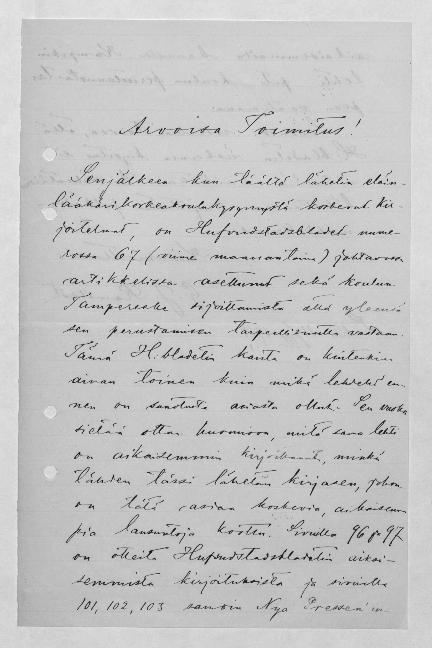 Arvoisa Toimitus!
Senjälkeen kun täältä lähetin eläin-
lääkärikorkeakoulukysymystä koskevat kir-
joitelmat, on Hufvudstadsbladet nume-
rossa 67 (viime maanantaina) johtavassa
artikkelissa asettunut sekä koulun
Tampereelle sijoittamista että yleensä
sen perustamisen tarpeellisuutta vastaan.
Tämä H.bladetin kanta on kuitenkin
aivan toinen kuin mikä lehdellä en-
nen on sanotusta asiasta ollut. Sen vuoksi
sietää ottaa huomioon, mitä sama lehti
on aikaisemmin kirjoittanut, minkä
tähden tässä lähetän kirjasen, johon
on tätä asiaa koskevia, aikaisem-
pia lausuntoja koottu. Sivuilla 96 ja 97
on otteita Hufvudstadsbladetin aikai-
semmista kirjoituksista ja sivuilla
101, 102, 103 samoin Nya Pressen'in